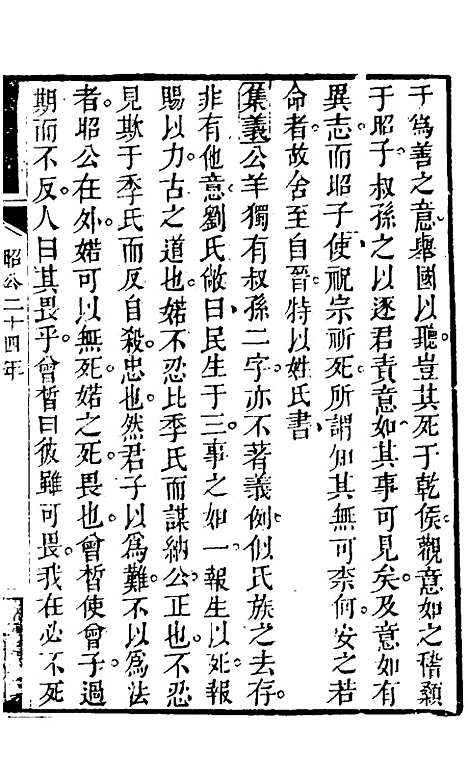 于為善之意舉國以聽豈其死于乾侯觀意如之稽顙
于昭子叔孫之以逐君責意如其事可見矣及意如有
異志而昭子使祝宗祈死所謂知其無可柰何安之若
命者故舍至自晉特以姓氏書
集義公羊獨有叔孫二字亦不著義例似氏族之去存
非有他意劉氏敞曰民生于三事之如一報生以死報
賜以力古之道也婼不忍比季氏而謀納公正也不忍
見欺于季氏而反自殺忠也然君子以為難不以為法
者昭公在外婼可以無死婼之死畏也曾皙使曾子過
期而不反人曰其畏乎曾皙曰彼雖可畏我在必不死
昭公二十四年